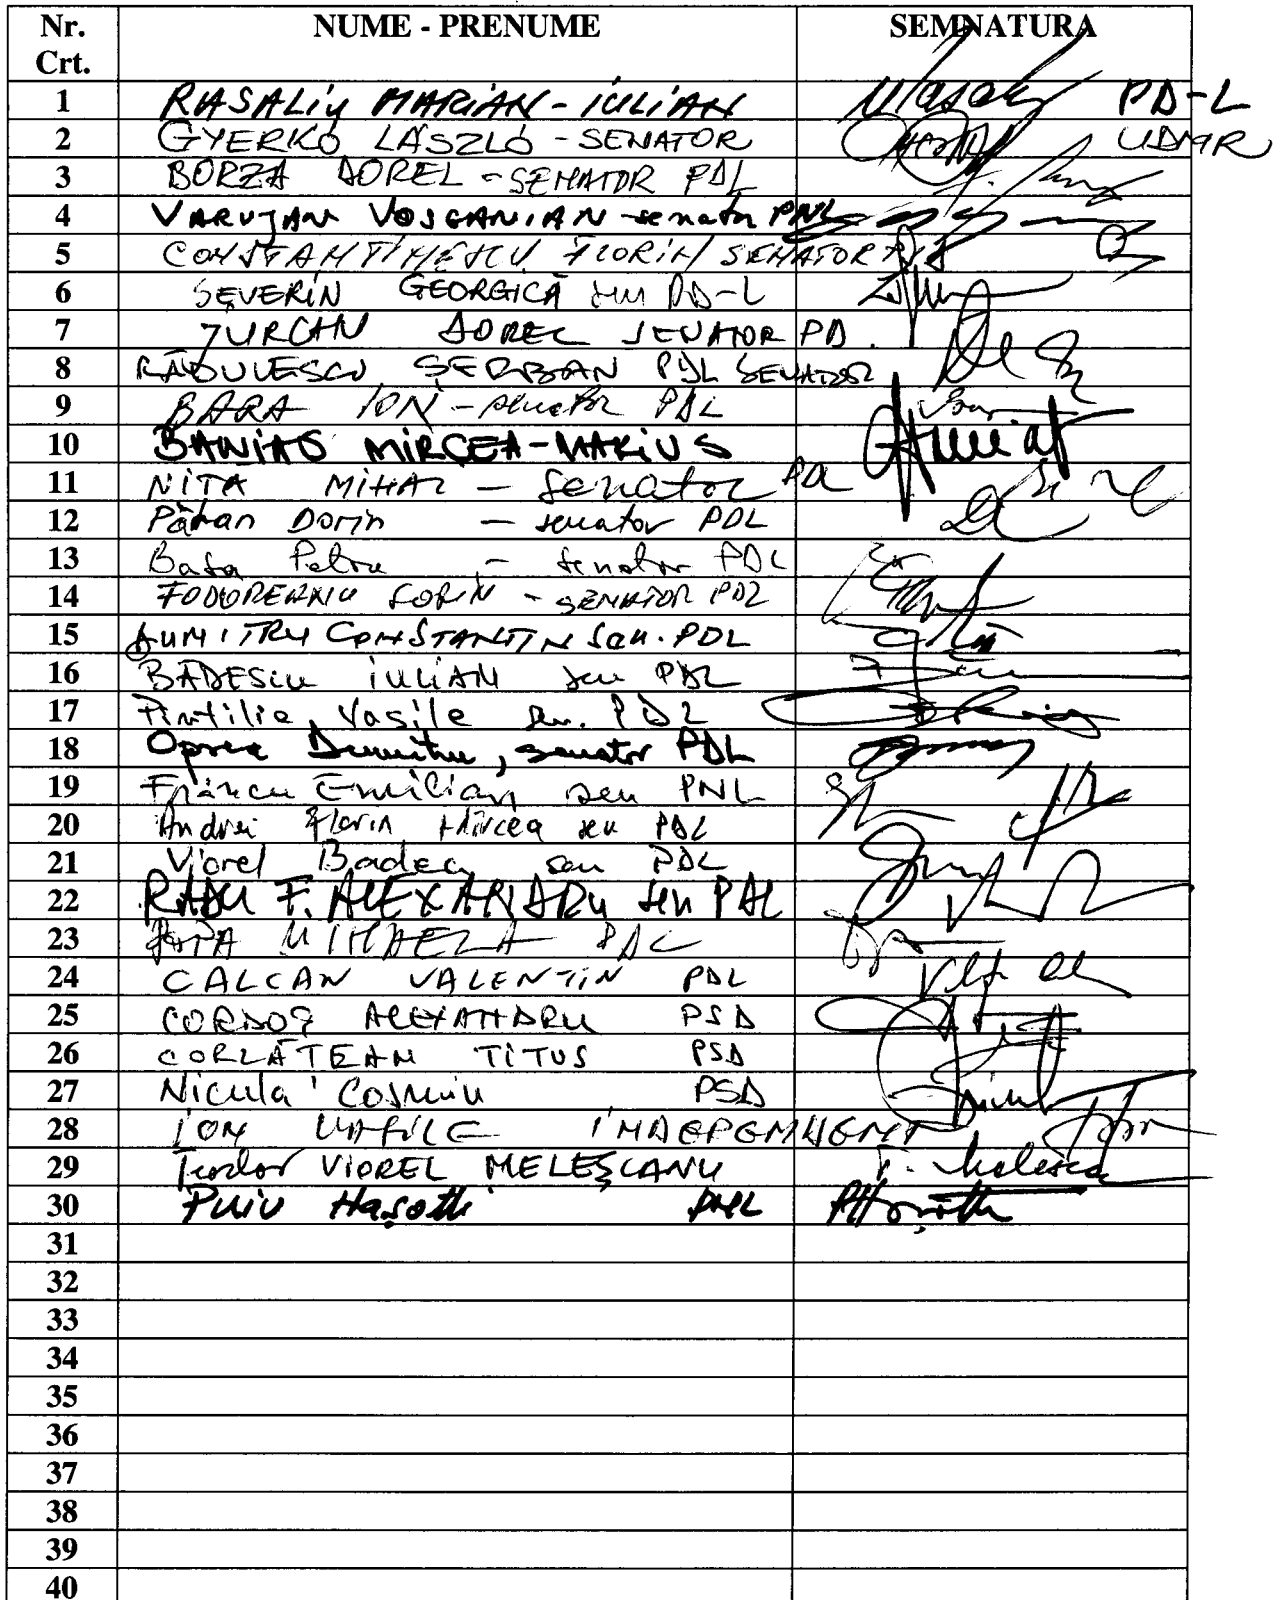 Nr. Crt. NUME - PRENUME SEMNATURA
1 RASALIU MARIAN-IULIAN PD-L
2 GYERKÓ LÁSZLÓ - SENATOR UDMR
3 BORZA DOREL - SENATOR PDL
4 VARUJAN VOSGANIAN - senator PNL
5 CONSTANTINESCU FLORIN SENATOR
6 SEVERIN GEORGICĂ sen PD-L
7 ȚURCAN DOREL SENATOR PD
8 RĂDULESCU ȘERBAN PDL SENATOR
9 BARA ION - senator PDL
10 BANIAS MIRCEA-MARIUS
11 NITA MIHAI - Senator
12 Păran Dorin - senator PDL
13 Basa Petru - senator PDL
14 FODOREANU SORIN - SENATOR PDL
15 DUMITRU CONSTANTIN Sen. PDL
16 BĂDESCU IULIAN sen PDL
17 Pintilie Vasile sen. PDL
18 Oprea Dumitru, senator PDL
19 Frâncu Emilian sen PNL
20 Andrei Florin Mircea sen PDL
21 Viorel Badea sen PDL
22 RADU F. ALEXANDRU sen PDL
23 POPA MIHAELA PDL
24 CALCAN VALENTIN PDL
25 CORDOȘ ALEXANDRU PSD
26 CORLĂȚEAN TITUS PSD
27 Nicula Cosmin PSD
28 ION VASILE INDEPENDENT
29 Teodor VIOREL MELEȘCANU
30 Puiu Hașotti PNL
31
32
33
34
35
36
37
38
39
40